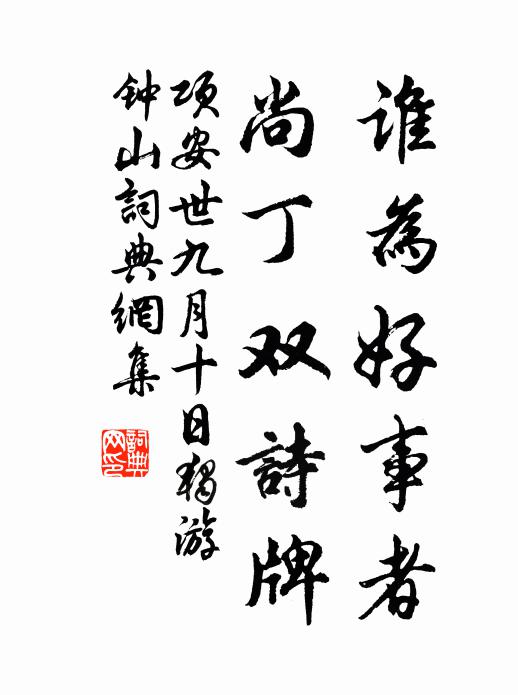 誰為好事者
尚丁双詩牌
项安世九月十日独游
钟山詞典網集
詞典
网印